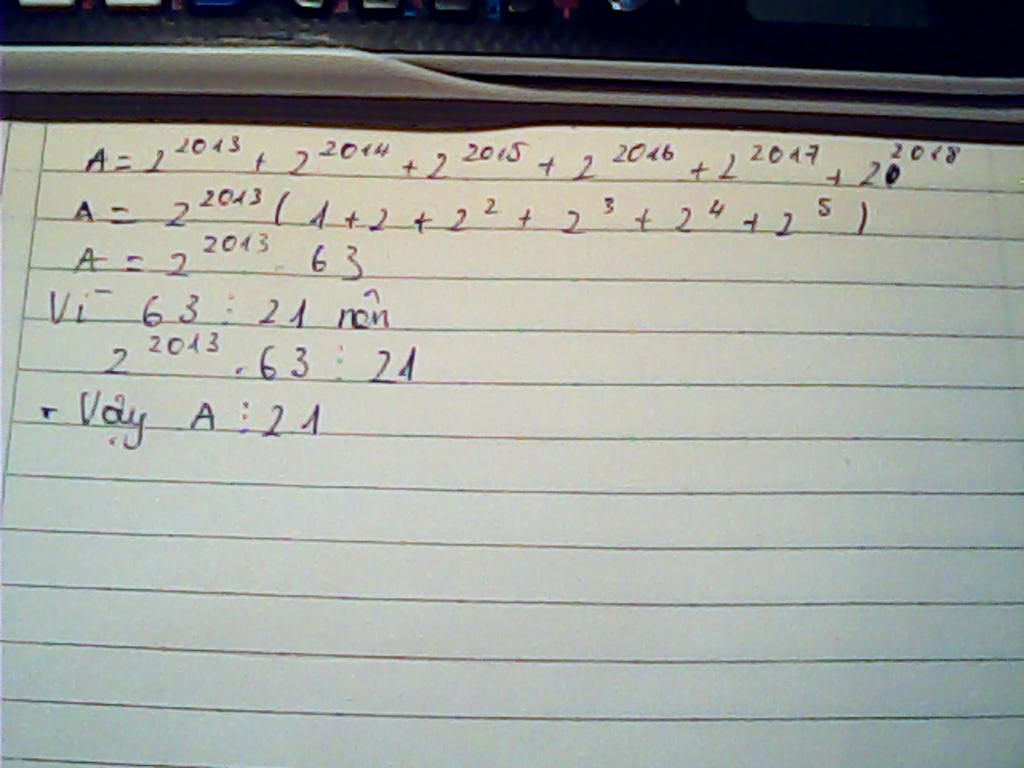 A = 2^2013 + 2^2014 + 2^2015 + 2^2016 + 2^2017 + 2^2018
A = 2^2013 ( 1 + 2 + 2^2 + 2^3 + 2^4 + 2^5 )
A = 2^2013 . 63
Vì 63 ⋮ 21 nên
2^2013 . 63 ⋮ 21
Vậy A ⋮ 21